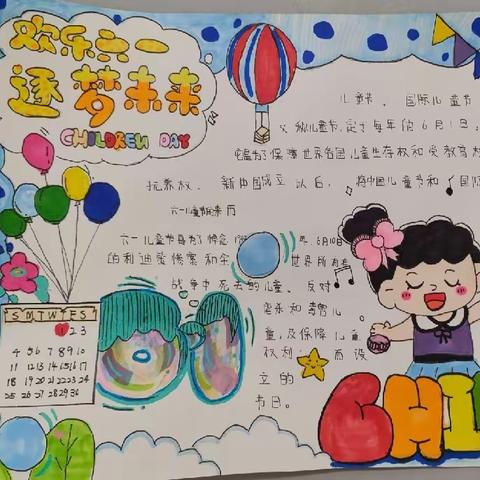 欢乐六一
逐梦未来
CHILDREN DAY
儿童节、国际儿童节
儿童节,定于每年的6月1日,
为了保障世界各国儿童生存权和受教育权
抚养权、新中国成立以后,将中国儿童节和国际
六一儿童节的来历
六一儿童节是为了悼念 年6月10日
的利迪策惨案和全 世界所有
战争中死去的儿童、反对
虐杀和毒害儿
童,及保障儿童
权利,而设
立的
节日。
S M T W T F S
1 2 3
4 5 6 7 8 9 10
11 12 13 14 15 16 17
18 19 20 21 22 23 24
25 26 27 28 29 30
CHIL